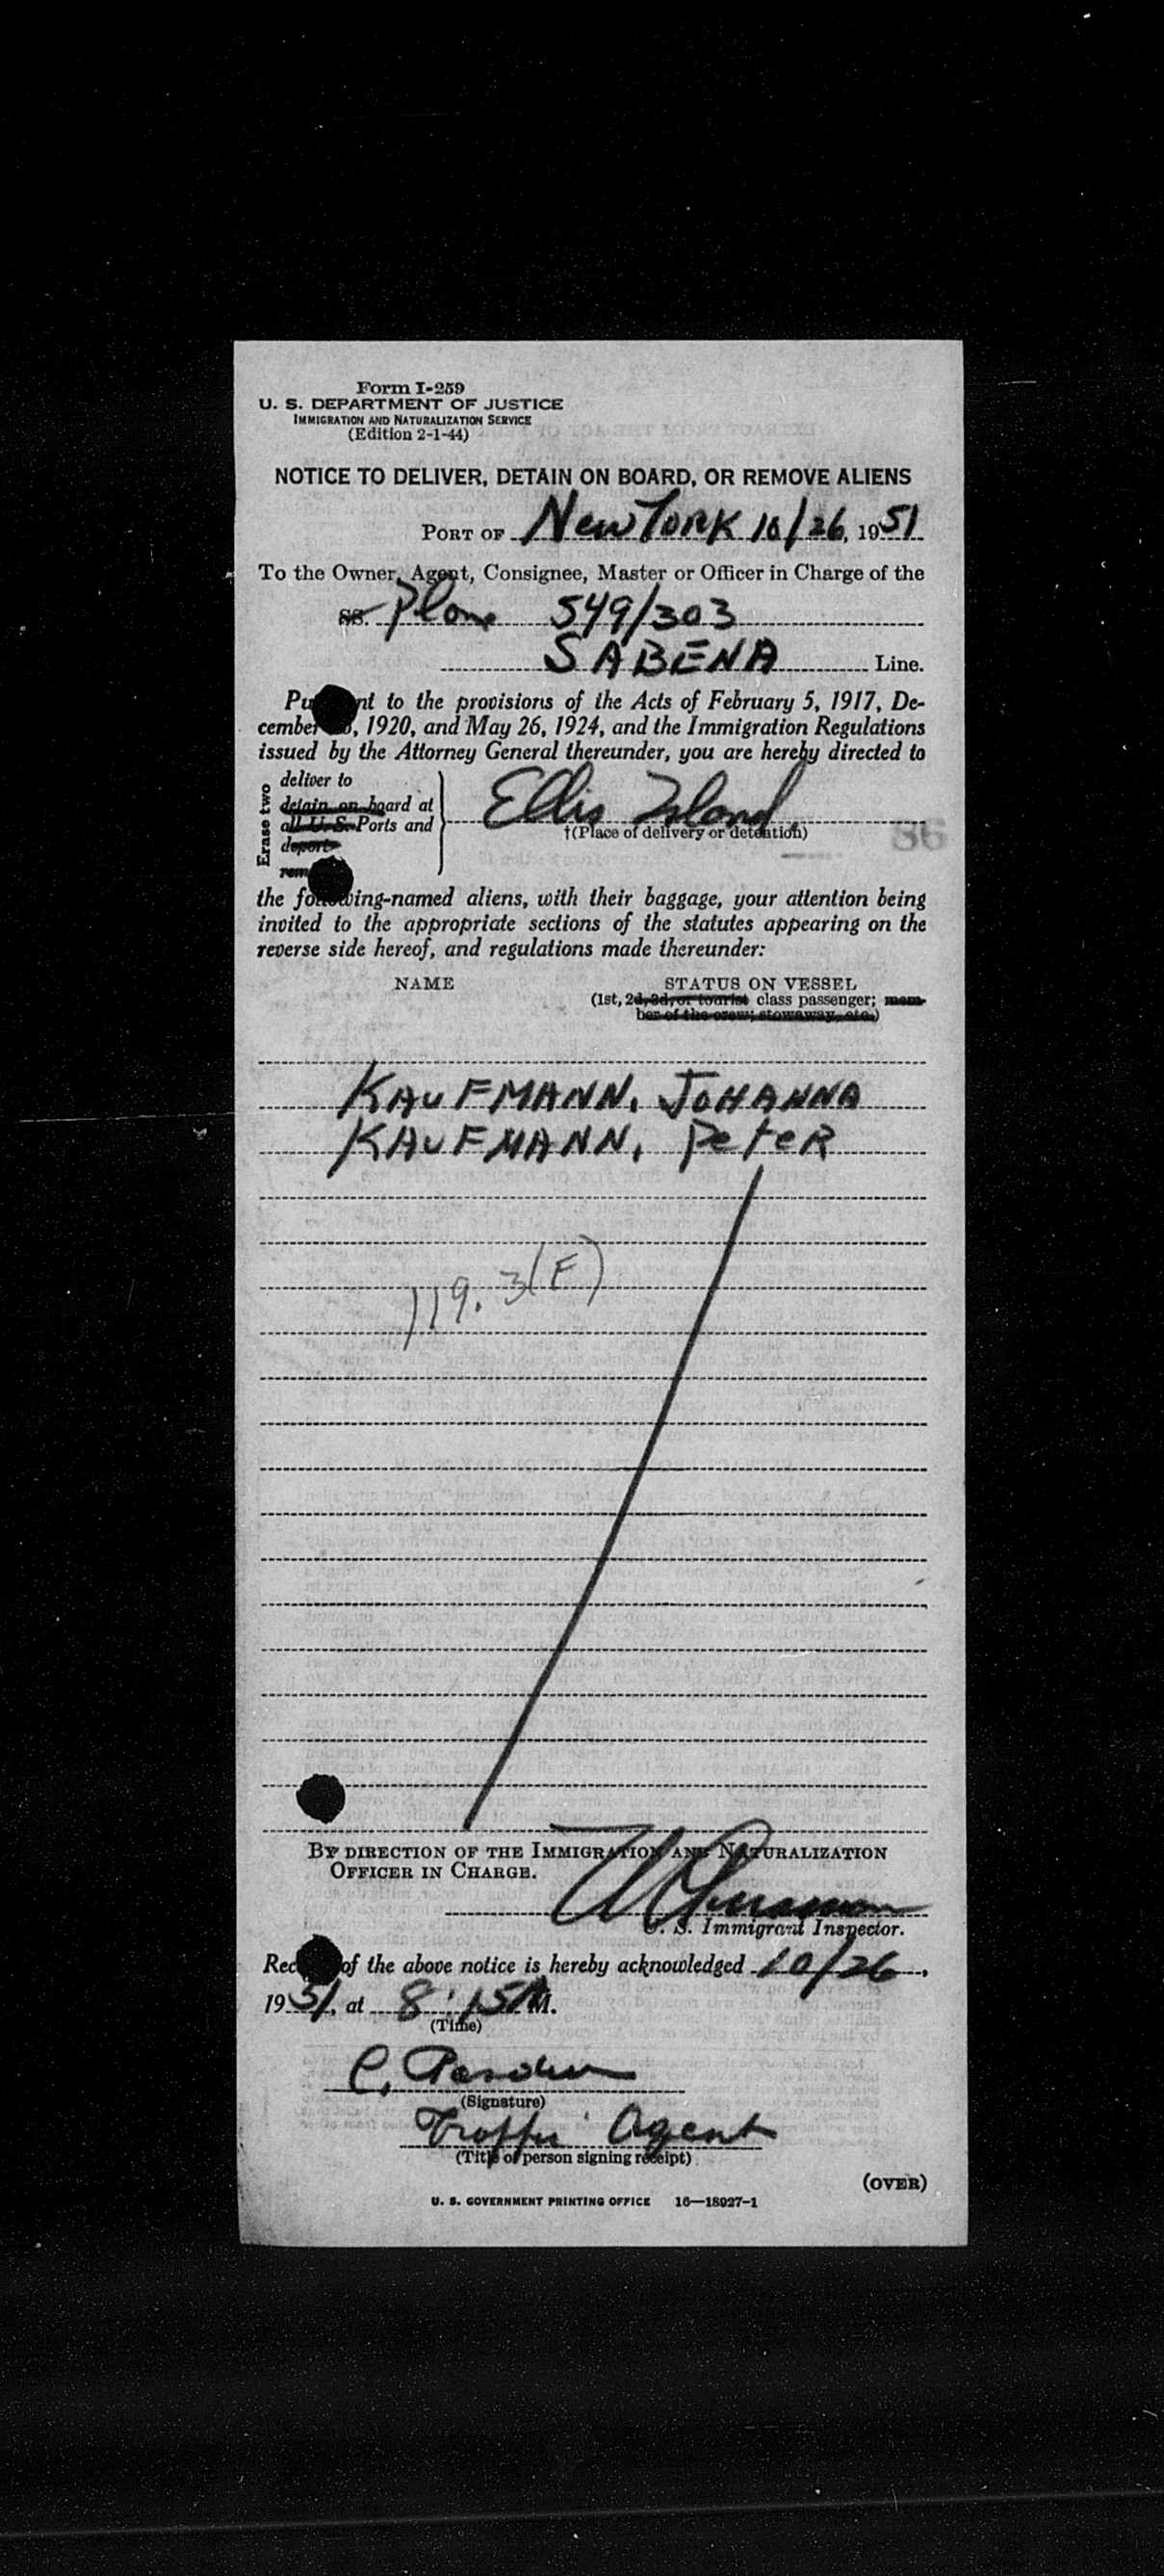 Form I-259
U. S. DEPARTMENT OF JUSTICE
IMMIGRATION AND NATURALIZATION SERVICE
(Edition 2-1-44)
NOTICE TO DELIVER, DETAIN ON BOARD, OR REMOVE ALIENS
PORT OF New York 10/26, 1951
To the Owner, Agent, Consignee, Master or Officer in Charge of the
SS. Plane 549/303
SABENA Line.
Pu nt to the provisions of the Acts of February 5, 1917, De-
cember , 1920, and May 26, 1924, and the Immigration Regulations
issued by the Attorney General thereunder, you are hereby directed to
Erase two
deliver to
detain on board at
all U. S. Ports and
deport
rem
Ellis Island
†(Place of delivery or detention)
86
the following-named aliens, with their baggage, your attention being
invited to the appropriate sections of the statutes appearing on the
reverse side hereof, and regulations made thereunder:
NAME STATUS ON VESSEL
(1st, 2d, 3d, or tourist class passenger; mem-
ber of the crew; stowaway, etc.)
KAUFMANN, JOHANNA
KAUFMANN, PeteR
119.3(F)
BY DIRECTION OF THE IMMIGRATION AND NATURALIZATION
OFFICER IN CHARGE.
U. S. Immigrant Inspector.
Rec of the above notice is hereby acknowledged 10/26,
1951, at 8:15 AM.
(Time)
C.
(Signature)
Traffic Agent
(Title of person signing receipt)
(OVER)
U. S. GOVERNMENT PRINTING OFFICE 16—18927-1